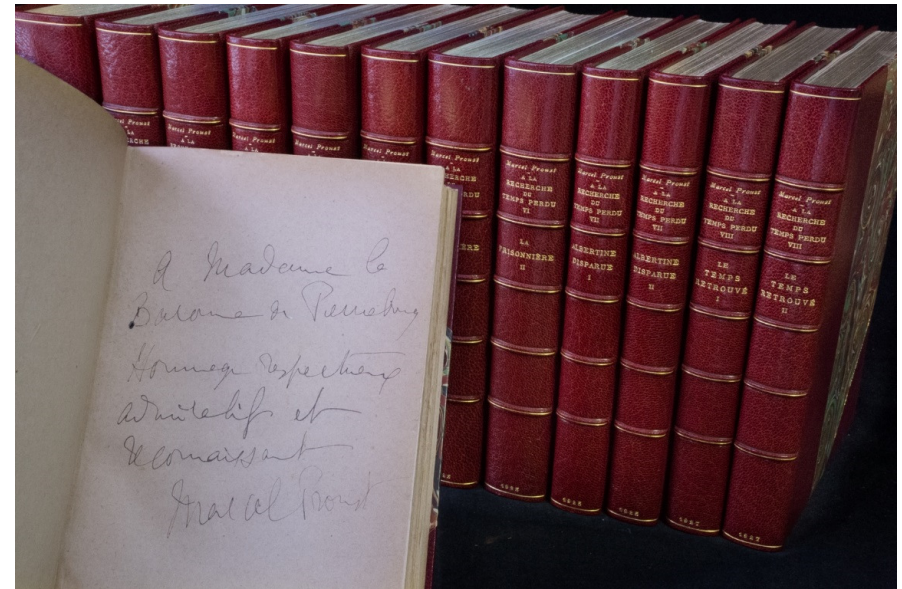 A Madame la
Baronne de Pierrebourg
Hommage respectueux
admiratif et
reconnaissant
Marcel Proust
LA
RCHE
Marcel Proust
A LA
Marcel Proust
A LA
Marcel Proust
A LA
Marcel Proust
Marcel Proust
RDU
ÈRE
Marcel Proust
A LA
RECHERCHE
DU
TEMPS PERDU
VI
LA
PRISONNIÈRE
II
Marcel Proust
A LA
RECHERCHE
DU
TEMPS PERDU
VII
ALBERTINE
DISPARUE
I
1925
Marcel Proust
A LA
RECHERCHE
DU
TEMPS PERDU
VII
ALBERTINE
DISPARUE
II
1925
Marcel Proust
A LA
RECHERCHE
DU
TEMPS PERDU
VIII
LE
TEMPS
RETROUVÉ
I
1927
Marcel Proust
A LA
RECHERCHE
DU
TEMPS PERDU
VIII
LE
TEMPS
RETROUVÉ
II
1927